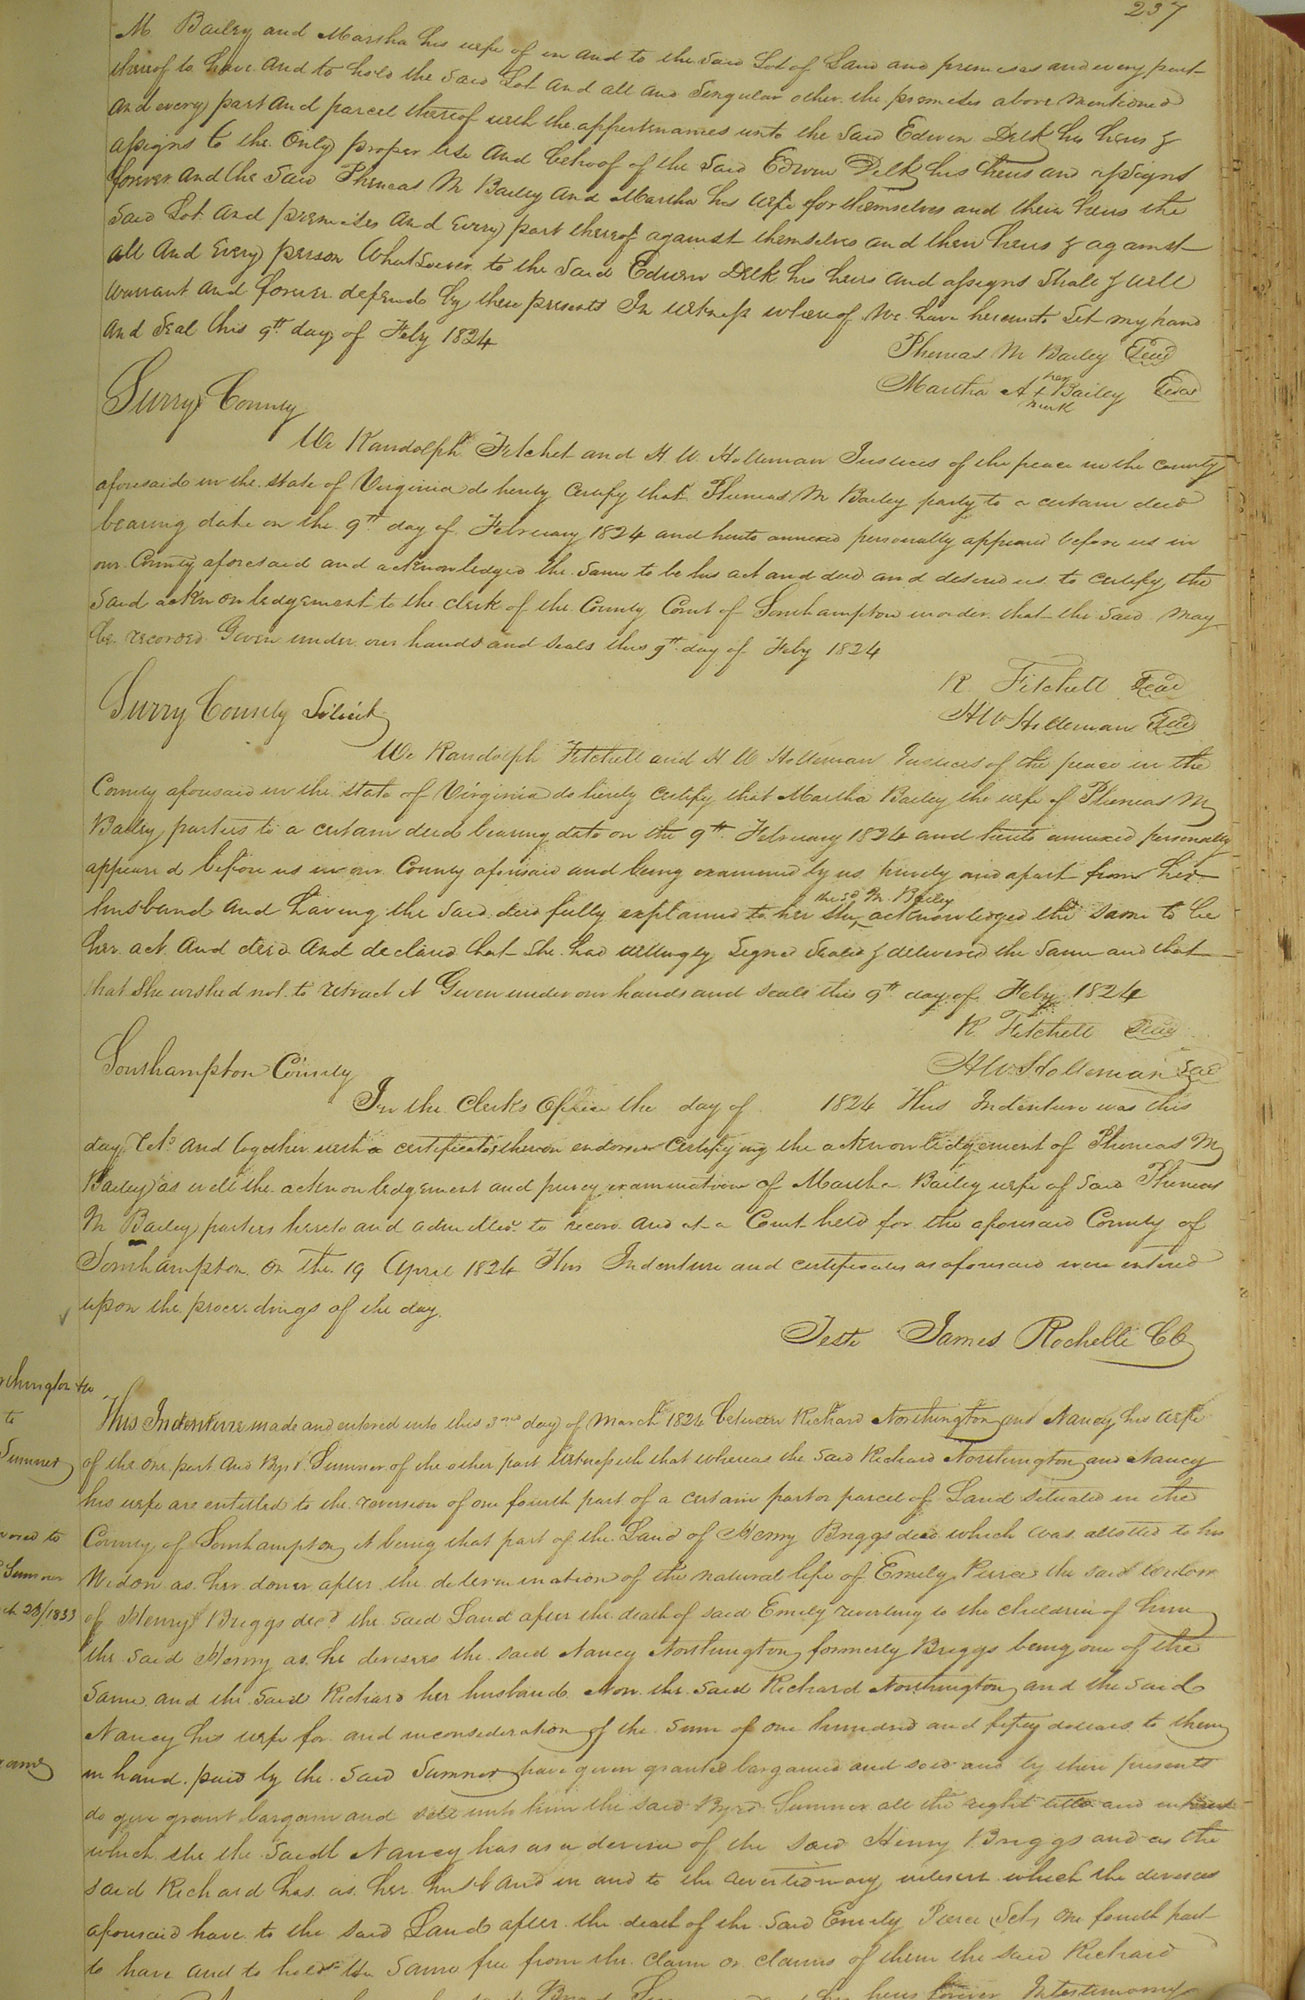 237
M Bailey and Martha his wife of in and to the said Lot of Land and premises and every part
thereof to have and to hold the said Lot and all and singular other the premises above mentioned
and every part and parcel thereof with the appertenances unto the said Edwin Delk his heirs &
assigns to the only proper use and behoof of the said Edwin Delk his heirs and assigns
forever and the said Phineas M Bailey and Martha his wife for themselves and their heirs the
said Lot and premises and every part thereof against themselves and their heirs & against
all and every person whatsoever to the said Edwin Delk his heirs and assigns shall & will
warrant and forever defend by these presents In witness whereof we have hereunto set my hand
and seal this 9th day of Feby 1824
Phineas M Bailey Seal
Martha A + Bailey Seal
her
mark
Surry County
We Randolph Fitchet and H. W. Holleman Justices of the peace in the county
aforesaid in the state of Virginia do hereby certify that Phineas M Bailey party to a certain deed
bearing date on the 9th day of February 1824 and hereto annexed personally appeared before us in
our County aforesaid and acknowledged the same to be his act and deed and desired us to certify the
said acknowledgement to the clerk of the County Court of Southampton in order that the said may
be recorded Given under our hands and seals this 9th day of Feby 1824
R. Fitchett Seal
HW Holleman Seal
Surry County
We Randolph Fitchett and H W Holleman Justices of the peace in the
County aforesaid in the state of Virginia do hereby certify that Martha Bailey the wife of Phineas M
Bailey parties to a certain deed bearing date on the 9th February 1824 and hereto annexed personally
appeared before us in our County aforesaid and being examined by us privily and apart from her
the sd M. Bailey
husband and having the said deed fully explained to her she acknowledged the same to be
her act and deed and declared that she had willingly signed sealed & delivered the same and that
that she wished not to retract it Given under our hands and seals this 9th day of Feby 1824
R. Fitchett Seal
HW Holleman Seal
Southampton County
In the Clerks Office the day of 1824 This Indenture was this
day and together with a certificate thereon endorsed certifying the acknowledgement of Phineas M
Bailey as well the acknowledgement and privy examination of Martha Bailey wife of said Phineas
M Bailey parties hereto and admitted to record and at a Court held for the aforesaid County of
Southampton on the 19 April 1824 This Indenture and certificates as aforesaid were entered
upon the proceedings of the day.
Teste James Rochelle CC
to
Sumner
This Indenture made and entered into this 3rd day of March 1824 between Richard Northington and Nancy his wife
of the one part and Byrd Sumner of the other part Witnesseth that whereas the said Richard Northington and Nancy
his wife are entitled to the reversion of one fourth part of a certain part or parcel of Land situated in the
County of Southampton it being that part of the Land of Henry Briggs decd which was allotted to his
Widow as her dower after the determination of the natural life of Emily Pierce the said widow
of Henry Briggs decd the said Land after the death of said Emily reverting to the children of him
the said Henry as he devisees the said Nancy Northington formerly Briggs being one of the
same and the said Richard her husband Now the said Richard Northington and the said
Nancy his wife for and inconsideration of the sum of one hundred and fifty dollars to them
in hand paid by the said Sumner have given granted bargained and sold and by these presents
do give grant bargain and sell unto him the said Byrd Sumner all the right title and interest
which the the said Nancy has as a devisee of the said Henry Briggs and as the
said Richard has as her husband in and to the reversionary interest which the devisees
aforesaid have to the said Land after the death of the said Emily Pierce one fourth part
to have and to hold the same free from the claim or claims of them the said Richard
heirs forever In testimony